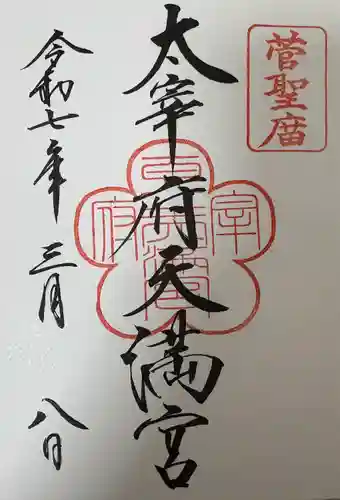 菅聖庿
太宰府天満宮
令和七年三月八日